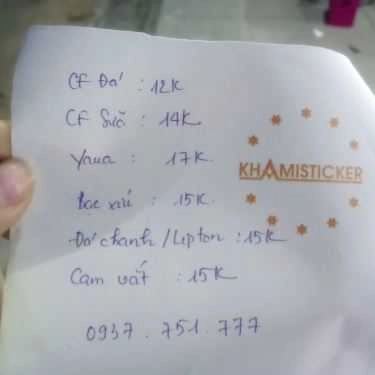 CF Đá : 12K
CF Sữa : 14K
Yaua : 17K
Bạc xỉu : 15K
Đá chanh / Lipton : 15K
Cam vắt : 15K
0937.751.777
KHAMISTICKER